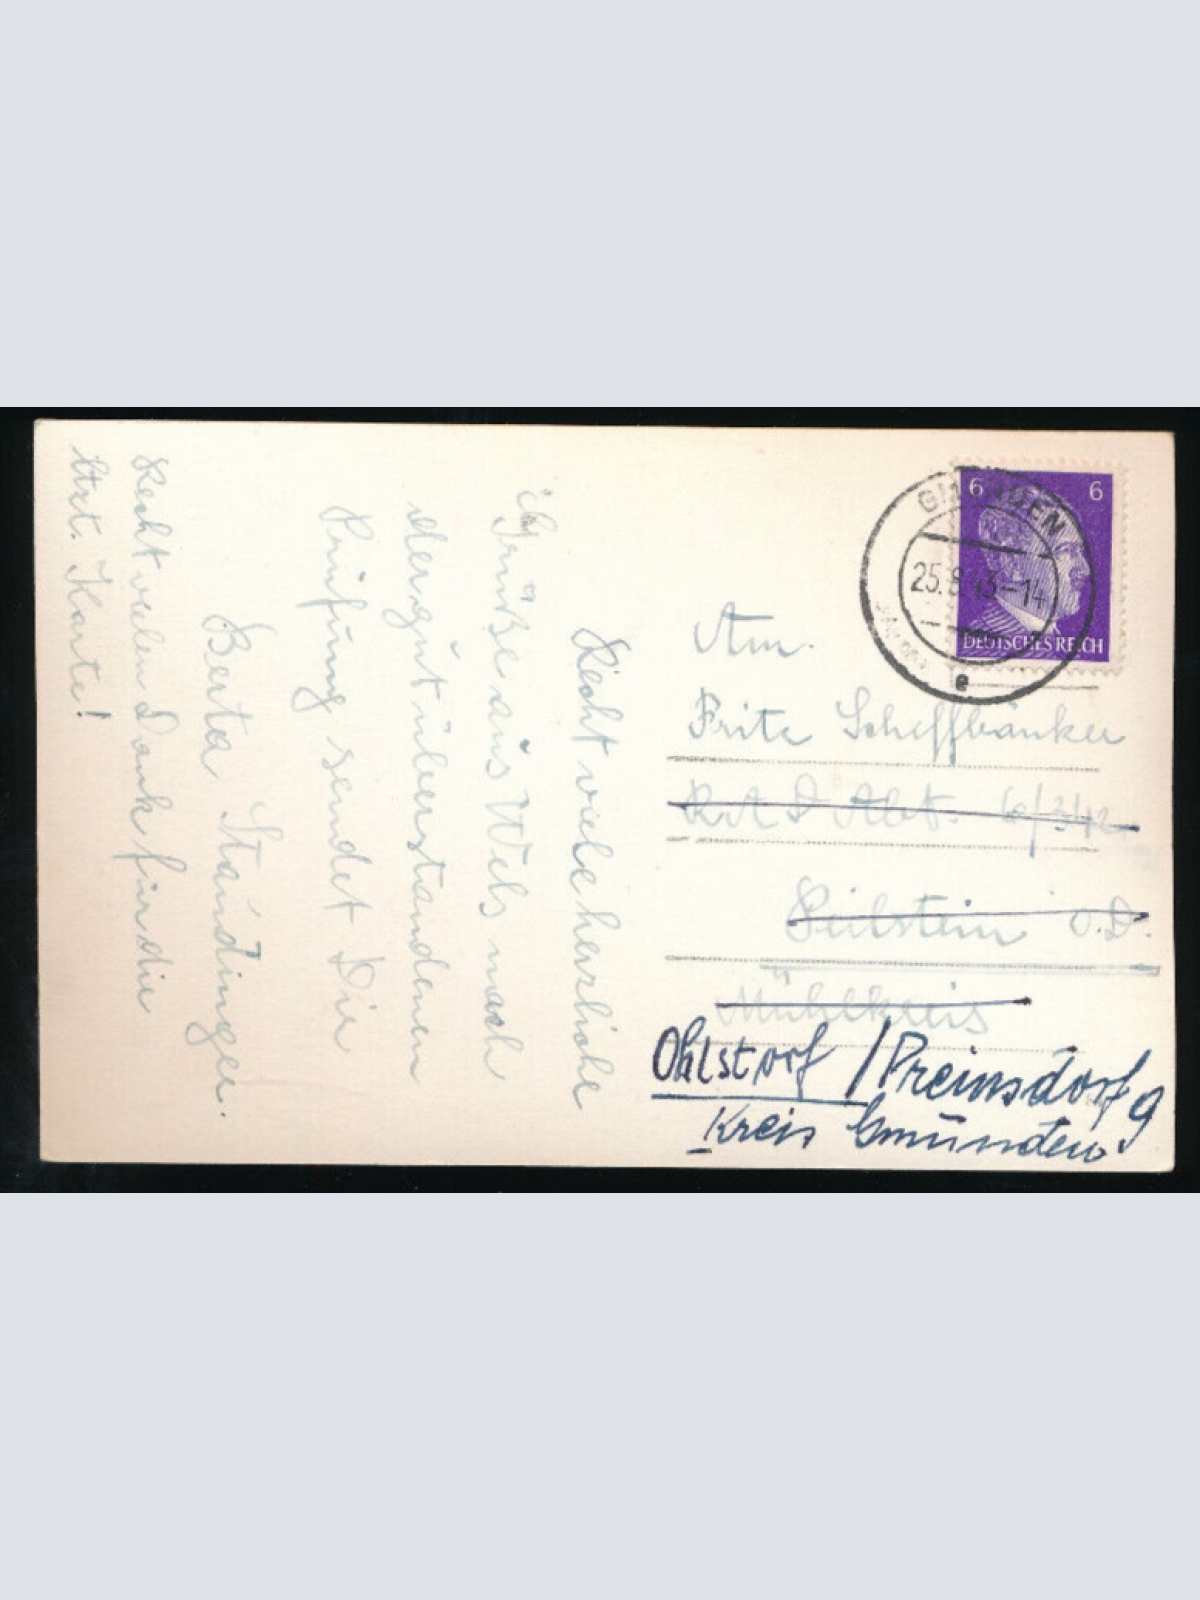 Recht viele herzliche
Grüße aus Wels nach
der gut überstandenen
Prüfung sendet Dir
Berta Staudinger.
Recht vielen Dank für die
Karte!
GMUNDEN
25.8.43-14
e
6 6
DEUTSCHES REICH
An
Fritz Scheffbänker
R A D Abt. 6/342
Peilstein O.D.
Mühlkreis
Ohlstorf / Preinsdorf 9
Kreis Gmunden